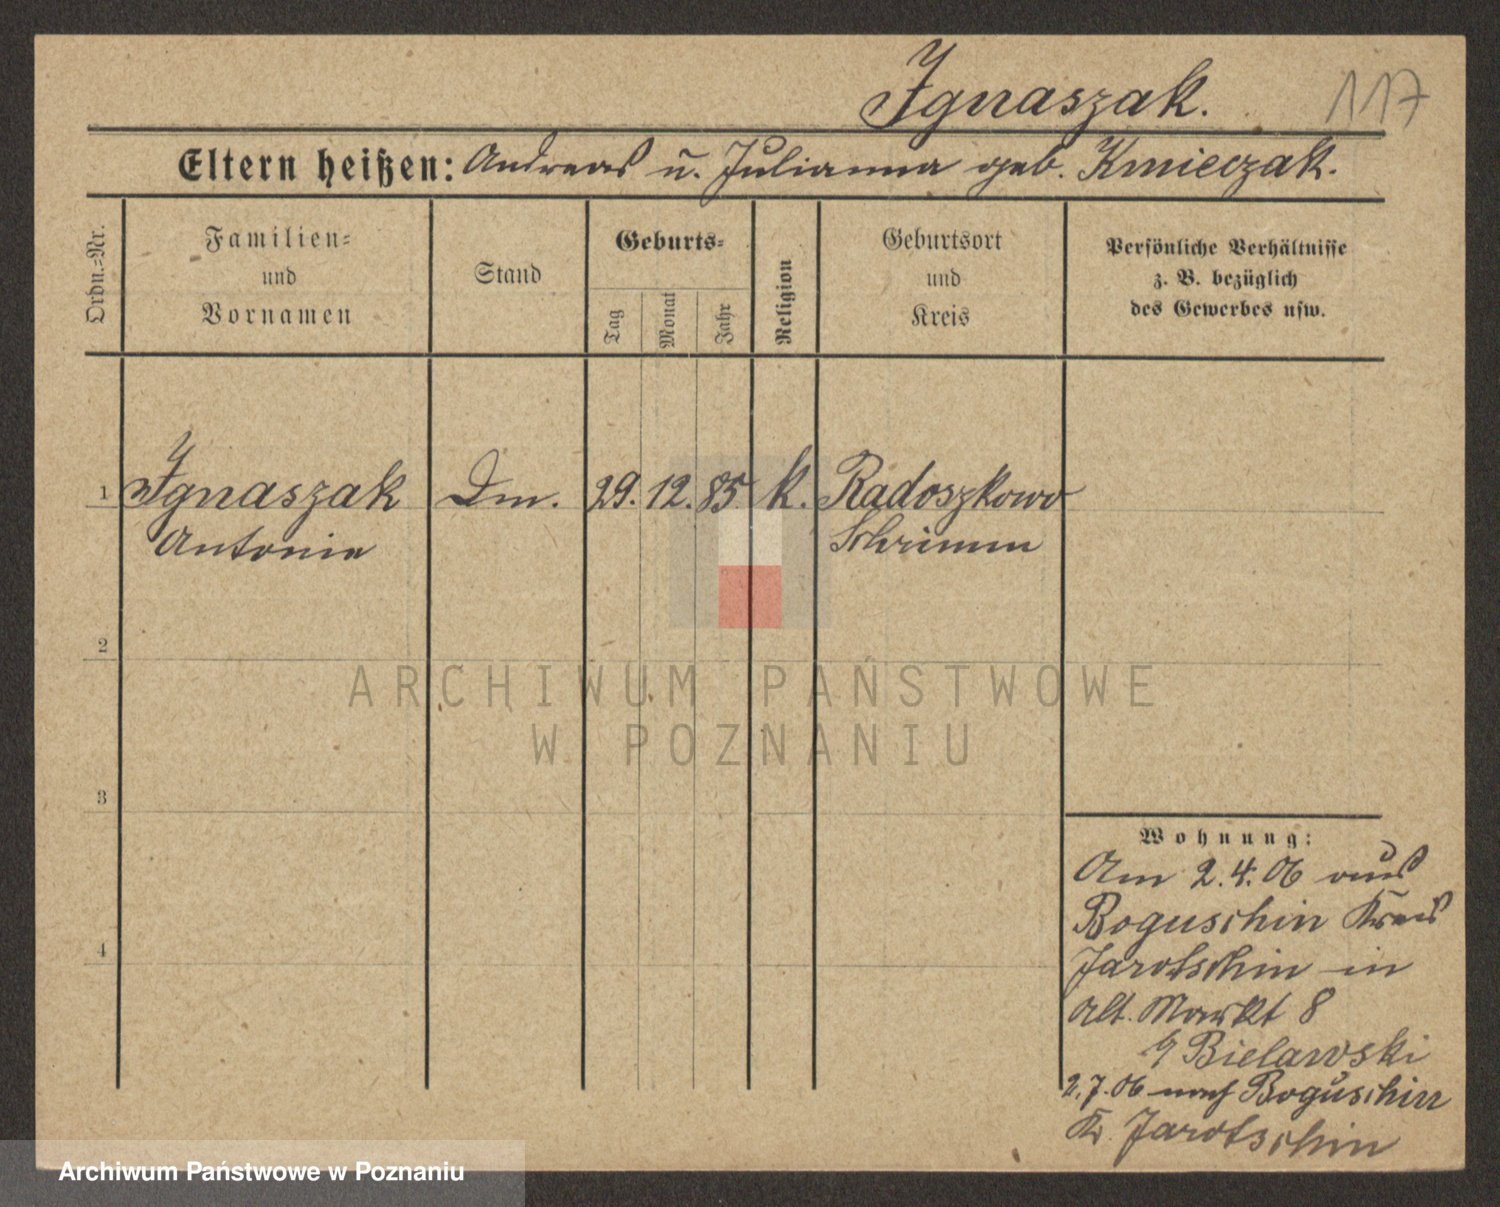 Ignaszak.
117
Eltern heißen: Andreas u. Julianna geb. Kmieczak.
Ordn.-Nr.
Familien- und Vornamen
Stand
Geburts-
Tag
Monat
Jahr
Religion
Geburtsort und Kreis
Persönliche Verhältnisse
z. B. bezüglich
des Gewerbes usw.
1 Ignaszak Dm. 29. 12. 85 k. Radoszkowo
Antonie Schrimm
2
3
4
Wohnung:
Am 2.4.06 aus
Boguschin Kreis
Jarotschin in
Alt. Markt 8
b/ Bielawski
2.7.06 nach Boguschin
Kr. Jarotschin
ARCHIWUM PAŃSTWOWE
W POZNANIU
Archiwum Państwowe w Poznaniu